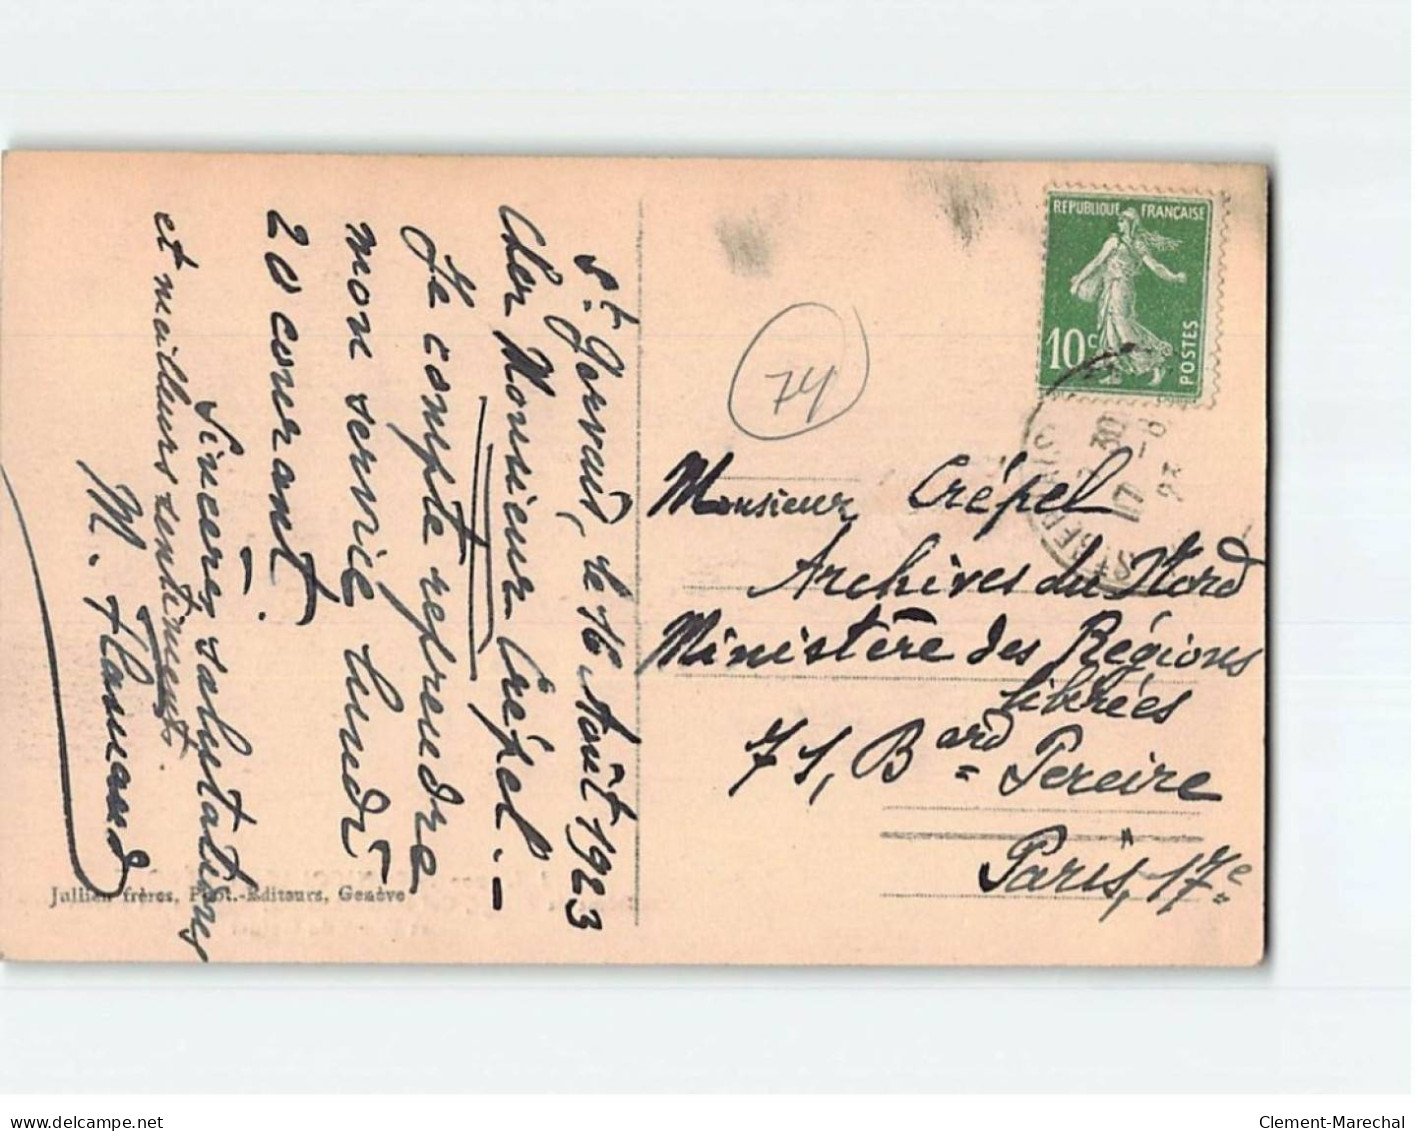 St. Gervais, le 16 Août 1923
Cher Monsieur Crépel.-
Je compte reprendre
mon service lundi
20 courant.
Sincères salutations
et meilleurs sentiments.
M. Flamand
Jullien frères, Phot.-Editeurs, Genève
74
REPUBLIQUE FRANÇAISE
10c
POSTES
17 -8
23
Monsieur Crépel
Archives du Nord
Ministère des Régions
libérées
71, Bard Pereire
Paris, 17e
delcampe.net
Clement-Marechal